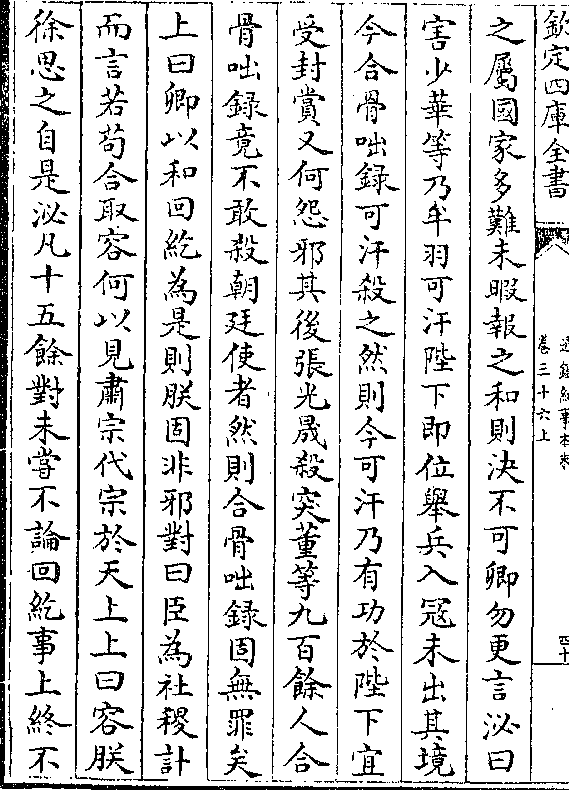 欽定四庫全書
通鑑紀事本末
卷三十六上
四十
之屬國家多難未暇報之和則決不可卿勿更言泌曰
害少華等乃牟羽可汗陛下即位舉兵入冦未出其境
今合骨咄録可汗殺之然則今可汗乃有功於陛下宜
受封賞又何怨邪其後張光晟殺突董等九百餘人合
骨咄録竟不敢殺朝廷使者然則合骨咄録固無罪矣
上曰卿以和回紇為是則朕固非邪對曰臣為社稷計
而言若苟合取容何以見肅宗代宗於天上上曰容朕
徐思之自是泌凡十五餘對未嘗不論回紇事上終不